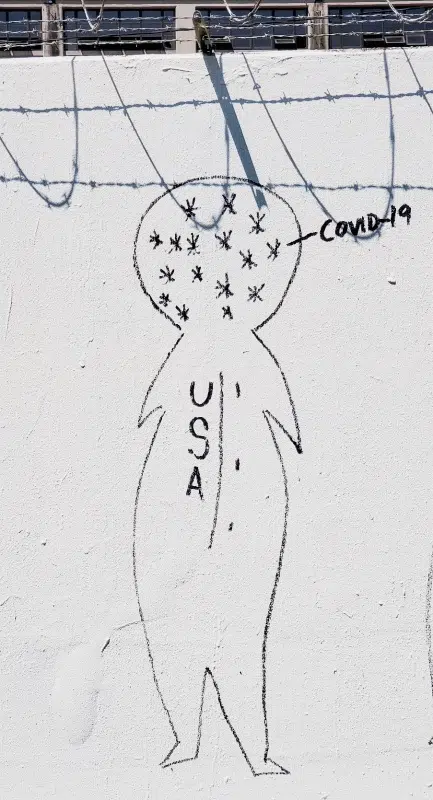 COVID-19
U
S
A